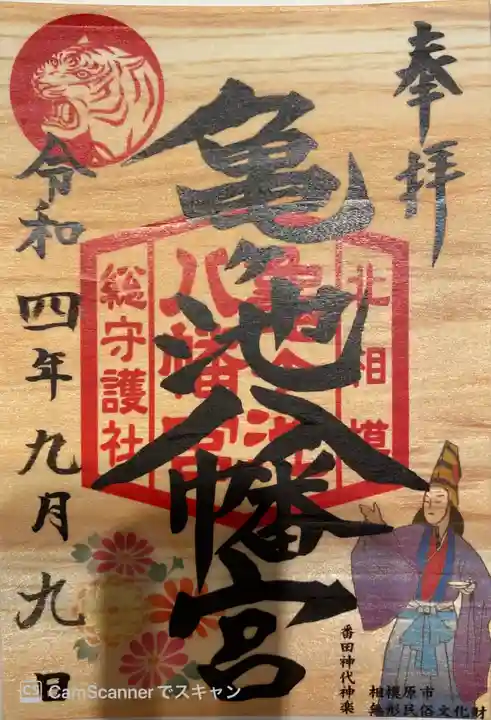 奉拝
亀ヶ池八幡宮
北相模
亀ヶ池
八幡宮
総守護社
令和四年九月九日
番田神代神楽
相模原市
無形民俗文化財
CS CamScannerでスキャン